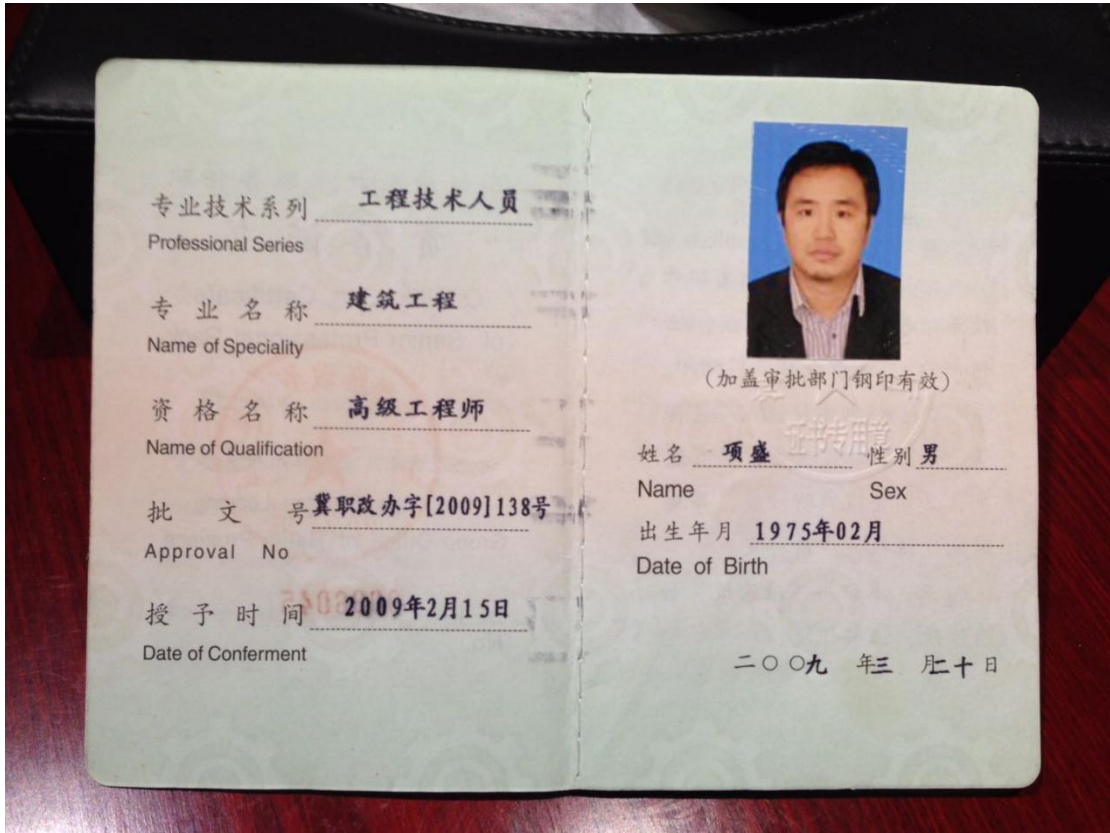 专业技术系列 工程技术人员
Professional Series
专业名称 建筑工程
Name of Speciality
资格名称 高级工程师
Name of Qualification
批文号 冀职改办字[2009]138号
Approval No
授予时间 2009年2月15日
Date of Conferment
(加盖审批部门钢印有效)
证书专用章
姓名 项盛 性别 男
Name Sex
出生年月 1975年02月
Date of Birth
二〇〇九 年三 月二十日